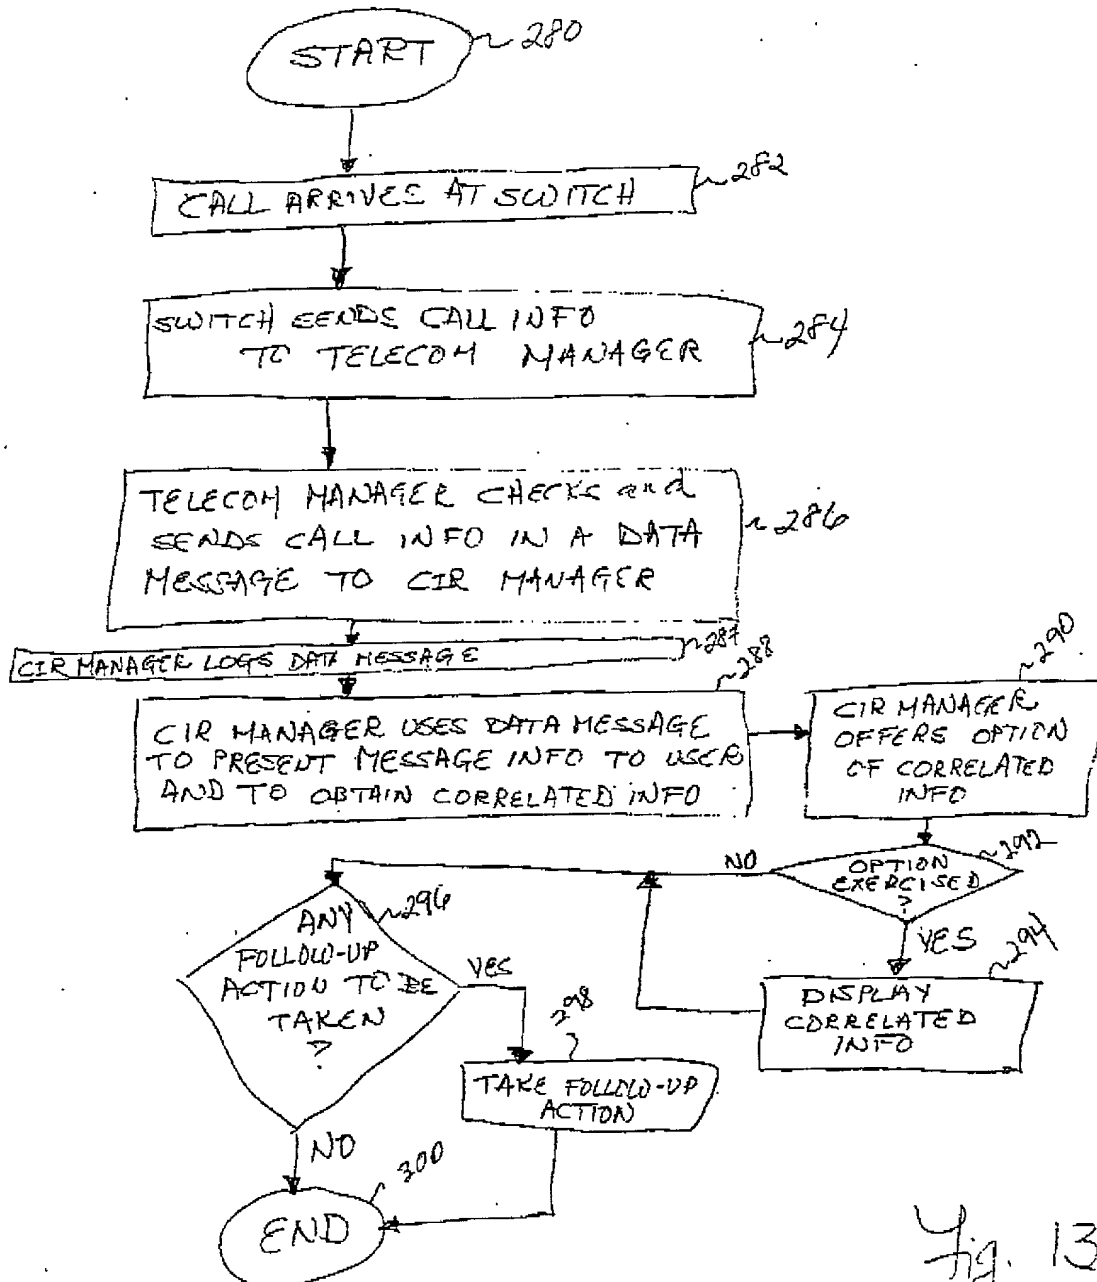 START
280
CALL ARRIVES AT SWITCH
282
SWITCH SENDS CALL INFO
TO TELECOM MANAGER
284
TELECOM MANAGER CHECKS and
SENDS CALL INFO IN A DATA
MESSAGE TO CIR MANAGER
286
CIR MANAGER LOGS DATA MESSAGE
287
CIR MANAGER USES DATA MESSAGE
TO PRESENT MESSAGE INFO TO USER
AND TO OBTAIN CORRELATED INFO
288
CIR MANAGER
OFFERS OPTION
OF CORRELATED
INFO
290
OPTION
EXERCISED
?
292
NO
YES
DISPLAY
CORRELATED
INFO
294
ANY
FOLLOW-UP
ACTION TO BE
TAKEN
?
296
YES
NO
TAKE FOLLOW-UP
ACTION
298
END
300
Fig. 13